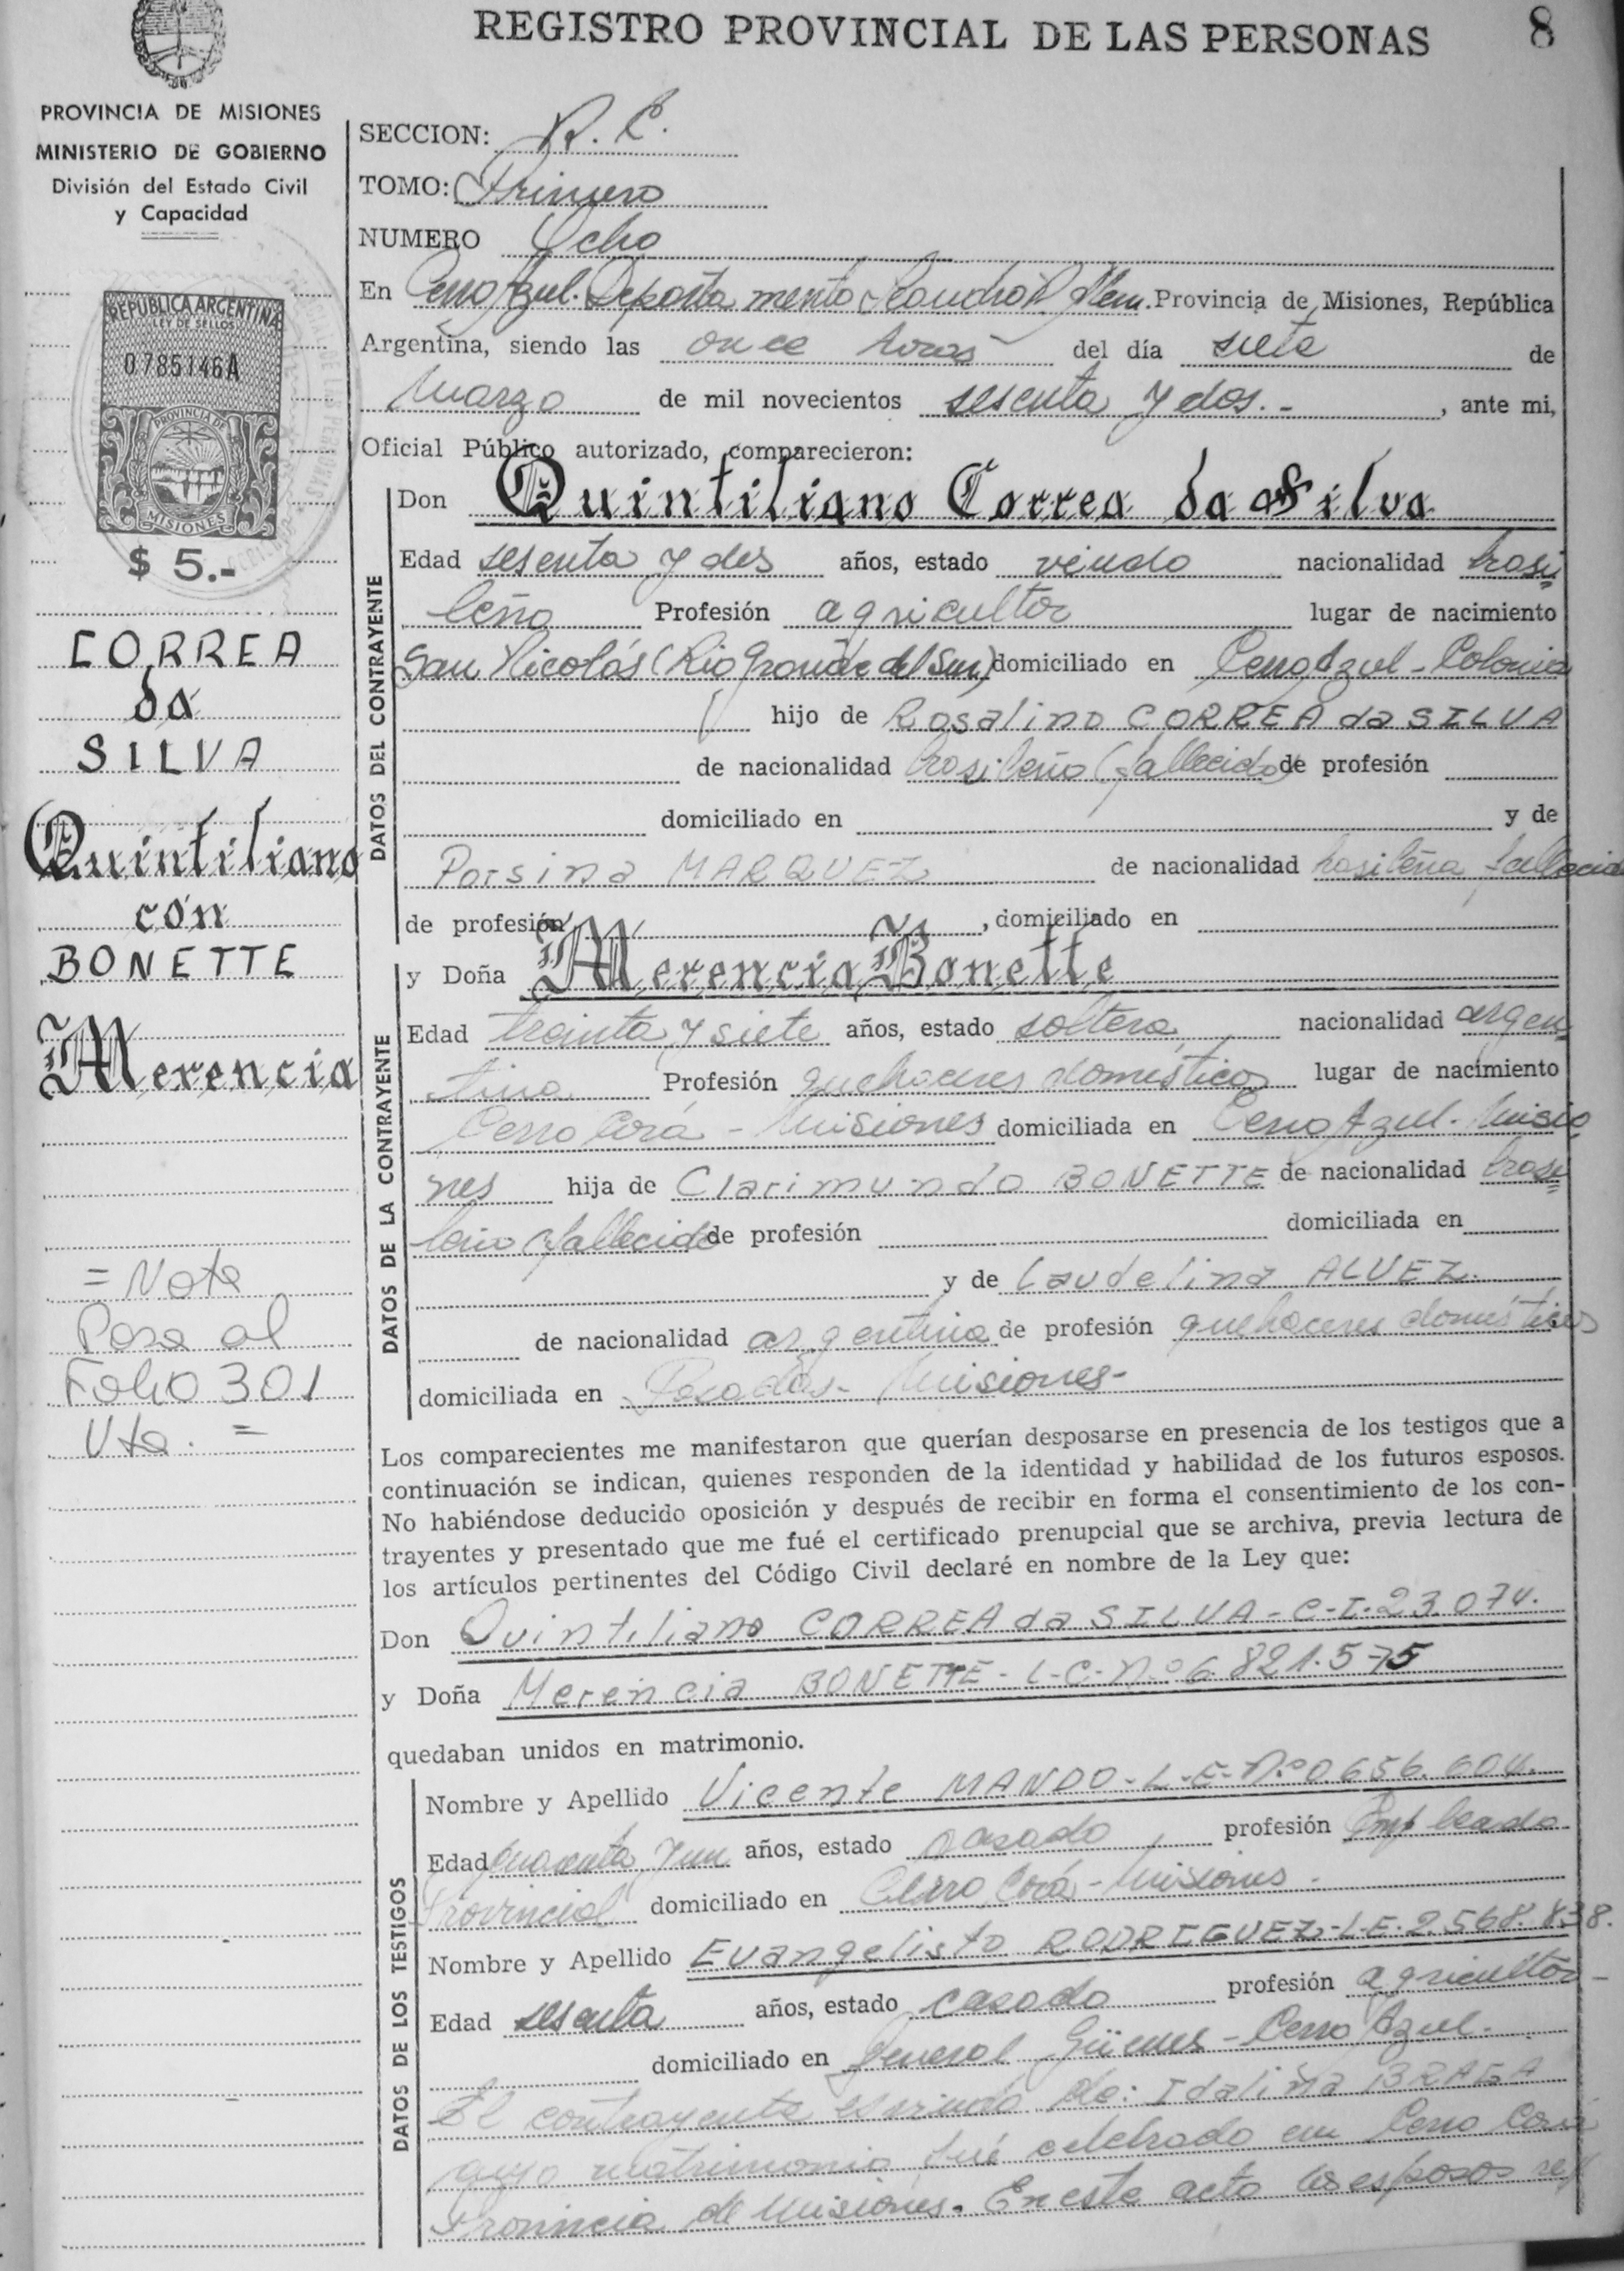 REGISTRO PROVINCIAL DE LAS PERSONAS 8
PROVINCIA DE MISIONES
MINISTERIO DE GOBIERNO
División del Estado Civil
y Capacidad
REPUBLICA ARGENTINA
LEY DE SELLOS
0785146A
PROVINCIA DE
MISIONES
$ 5.-
CORREA
da
SILVA
Quintiliano
con
BONETTE
Merencia
= Nota
Pasa al
Folio 301
Vta. =
SECCION: R. C.
TOMO: Primero
NUMERO Ocho
En Cerro Azul. Departamento Leandro N. Alem. Provincia de Misiones, República
Argentina, siendo las once horas del día siete de
Marzo de mil novecientos sesenta y dos.- , ante mi,
Oficial Público autorizado, comparecieron:
DATOS DEL CONTRAYENTE
Don Quintiliano Correa da Silva
Edad sesenta y dos años, estado viudo nacionalidad brasi
leña Profesión agricultor lugar de nacimiento
San Nicolás (Rio Grande del Sur) domiciliado en Cerro Azul - Colonia
hijo de Rosalino CORREA da SILVA
de nacionalidad brasileño (fallecido) de profesión
domiciliado en y de
Porsina MARQUEZ de nacionalidad brasileña fallecida
de profesión , domiciliado en
DATOS DE LA CONTRAYENTE
y Doña Merencia Bonette
Edad treinta y siete años, estado soltera nacionalidad argen
tina Profesión quehaceres domésticos lugar de nacimiento
Cerro Corá - Misiones domiciliada en Cerro Azul - Misio
nes hija de Clarimundo BONETTE de nacionalidad brasi
leño fallecido de profesión domiciliada en
y de Laudelina ALVEZ.
de nacionalidad argentina de profesión quehaceres domésticos
domiciliada en Posadas - Misiones-
Los comparecientes me manifestaron que querían desposarse en presencia de los testigos que a
continuación se indican, quienes responden de la identidad y habilidad de los futuros esposos.
No habiéndose deducido oposición y después de recibir en forma el consentimiento de los con-
trayentes y presentado que me fué el certificado prenupcial que se archiva, previa lectura de
los artículos pertinentes del Código Civil declaré en nombre de la Ley que:
Don Quintiliano CORREA da SILVA - C-I. 23.074.
y Doña Merencia BONETTE - L-C- Nº 6.821.575
quedaban unidos en matrimonio.
DATOS DE LOS TESTIGOS
Nombre y Apellido Vicente MANDO - L-E- Nº 0.656.604.
Edad cuarenta y un años, estado casado , profesión Empleado
Provincial domiciliado en Cerro Corá - Misiones.
Nombre y Apellido Evangelisto RODRIGUEZ - L-E. 2.568.838.
Edad sesenta años, estado casado profesión agricultor -
domiciliado en General Güemes - Cerro Azul.
El contrayente es viudo de: Idalina BRAGA
cuyo matrimonio fué celebrado en Cerro Corá
Provincia de Misiones. En este acto los esposos